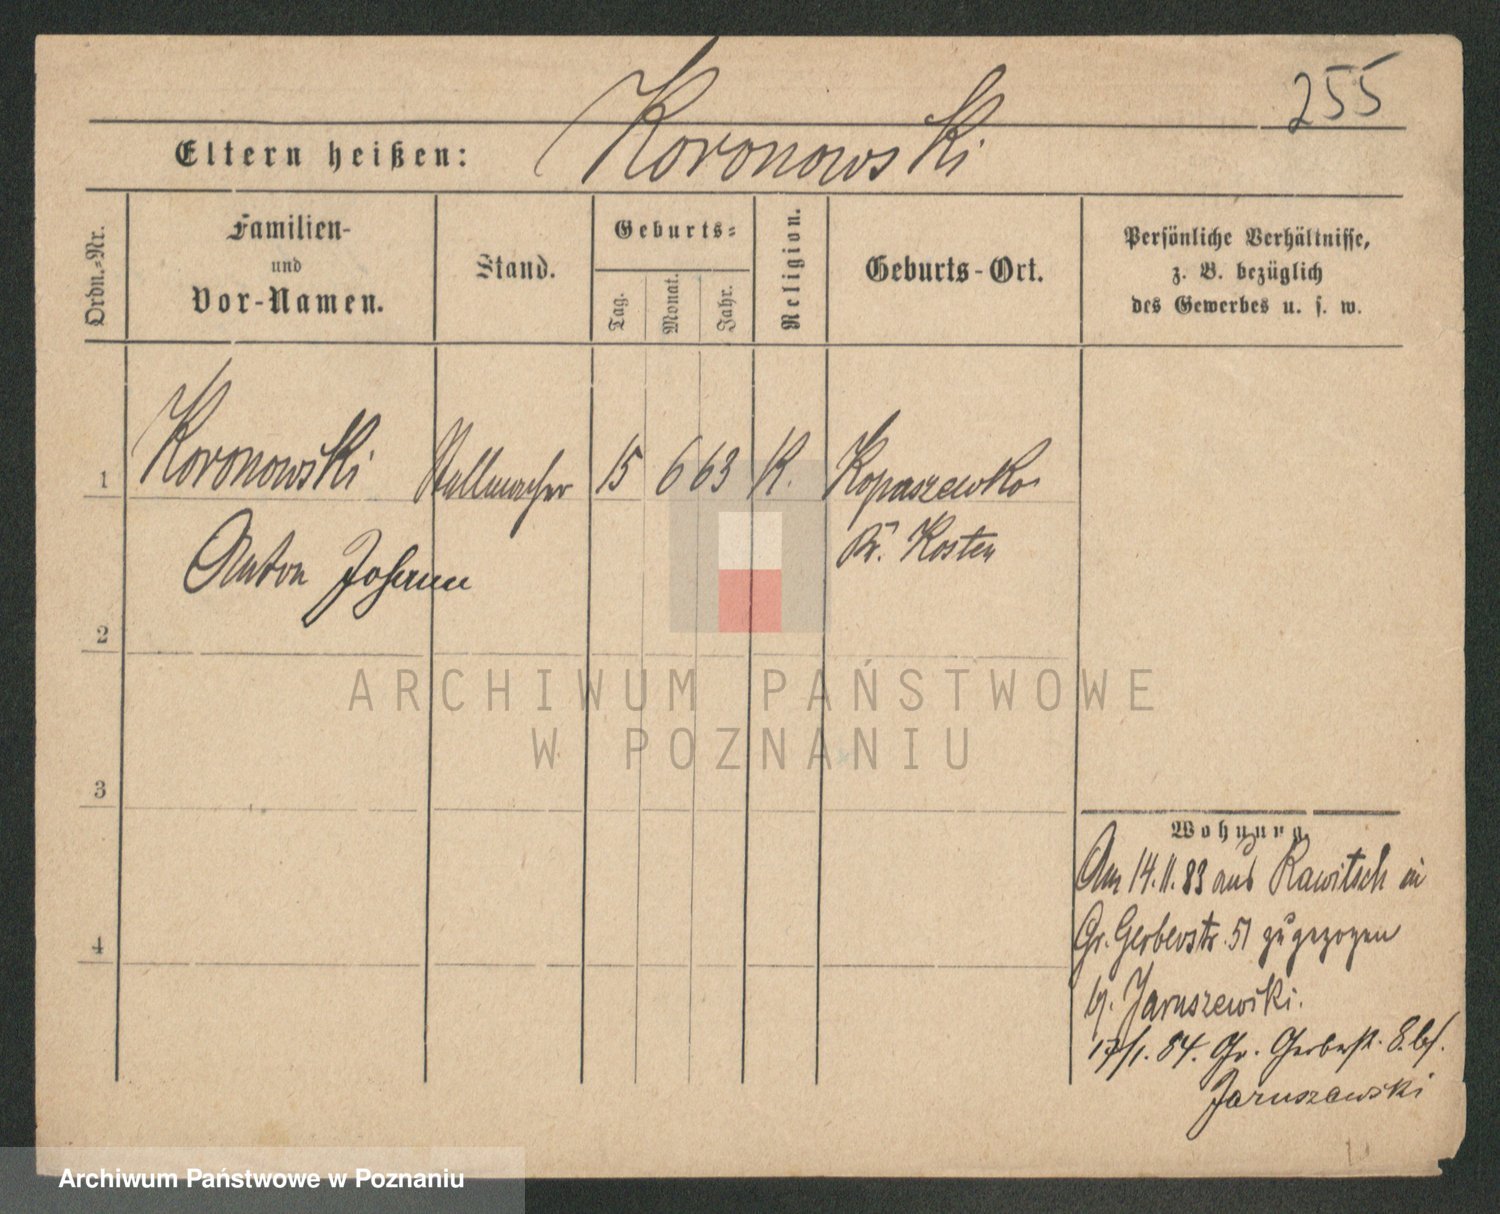 255
Eltern heißen: Koronowski
Ordn.-Nr.
Familien-
und
Vor-Namen.
Stand.
Geburts-
Tag.
Monat.
Jahr.
Religion.
Geburts-Ort.
Persönliche Verhältnisse,
z. B. bezüglich
des Gewerbes u. s. w.
1 Koronowski Stellmacher 15 6 63 K. Kopaszewko
Anton Johann Kr. Kosten
2
3
4
Wohnung
Am 14.11.83 aus Rawitsch in
Gr. Gerberstr. 51 zugezogen
bj. Jaruszewski.
17/1. 84. Gr. Gerberst. 8. bf.
Jaruszewski
ARCHIWUM PAŃSTWOWE
W POZNANIU
Archiwum Państwowe w Poznaniu